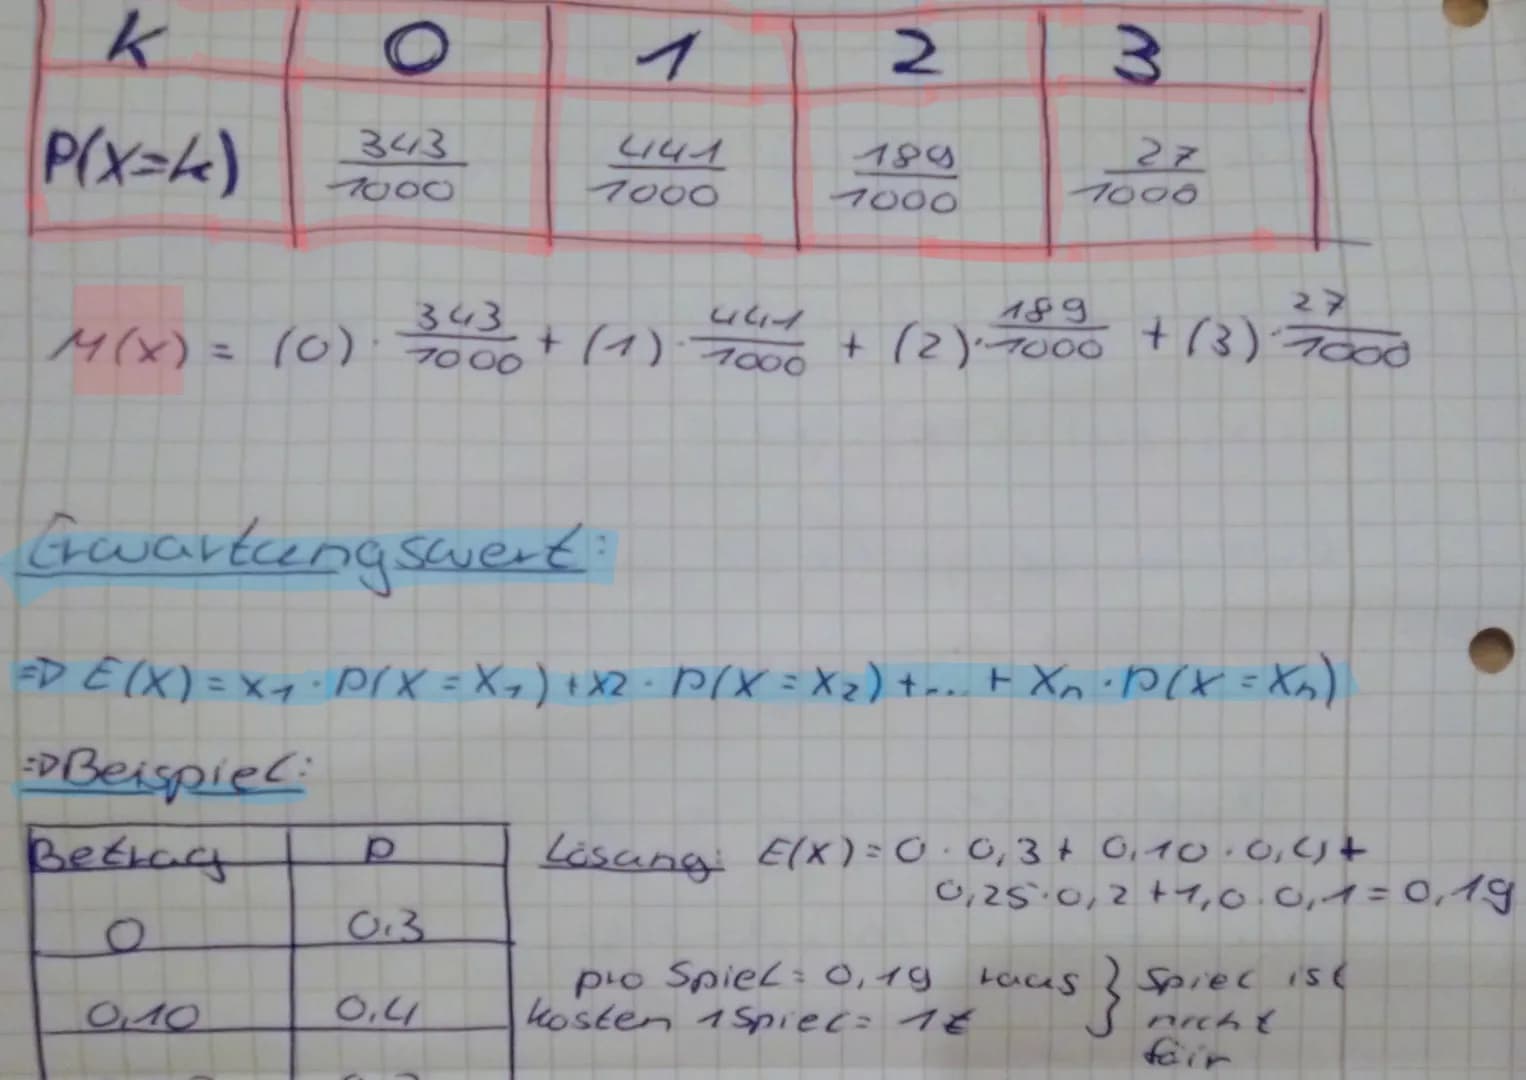 k 0 1 2 3
P(X=k) 343/1000 441/1000 189/1000 27/1000
M(x) = (0) · 343/1000 + (1) · 441/1000 + (2) · 189/1000 + (3) · 27/1000
Erwartungswert:
⇒ E(X) = x₁ · P(X = X₁) + x2 · P(X = X₂) + ... + Xn · P(X = Xn)
⇒ Beispiel:
Betrag P
0 0,3
0,10 0,4
Lösung: E(X) = 0 · 0,3 + 0,10 · 0,4 +
0,25 · 0,2 + 1,0 · 0,1 = 0,19
pro Spiel = 0,19 raus } Spiel ist
kosten 1 Spiel = 1€ nicht
fair